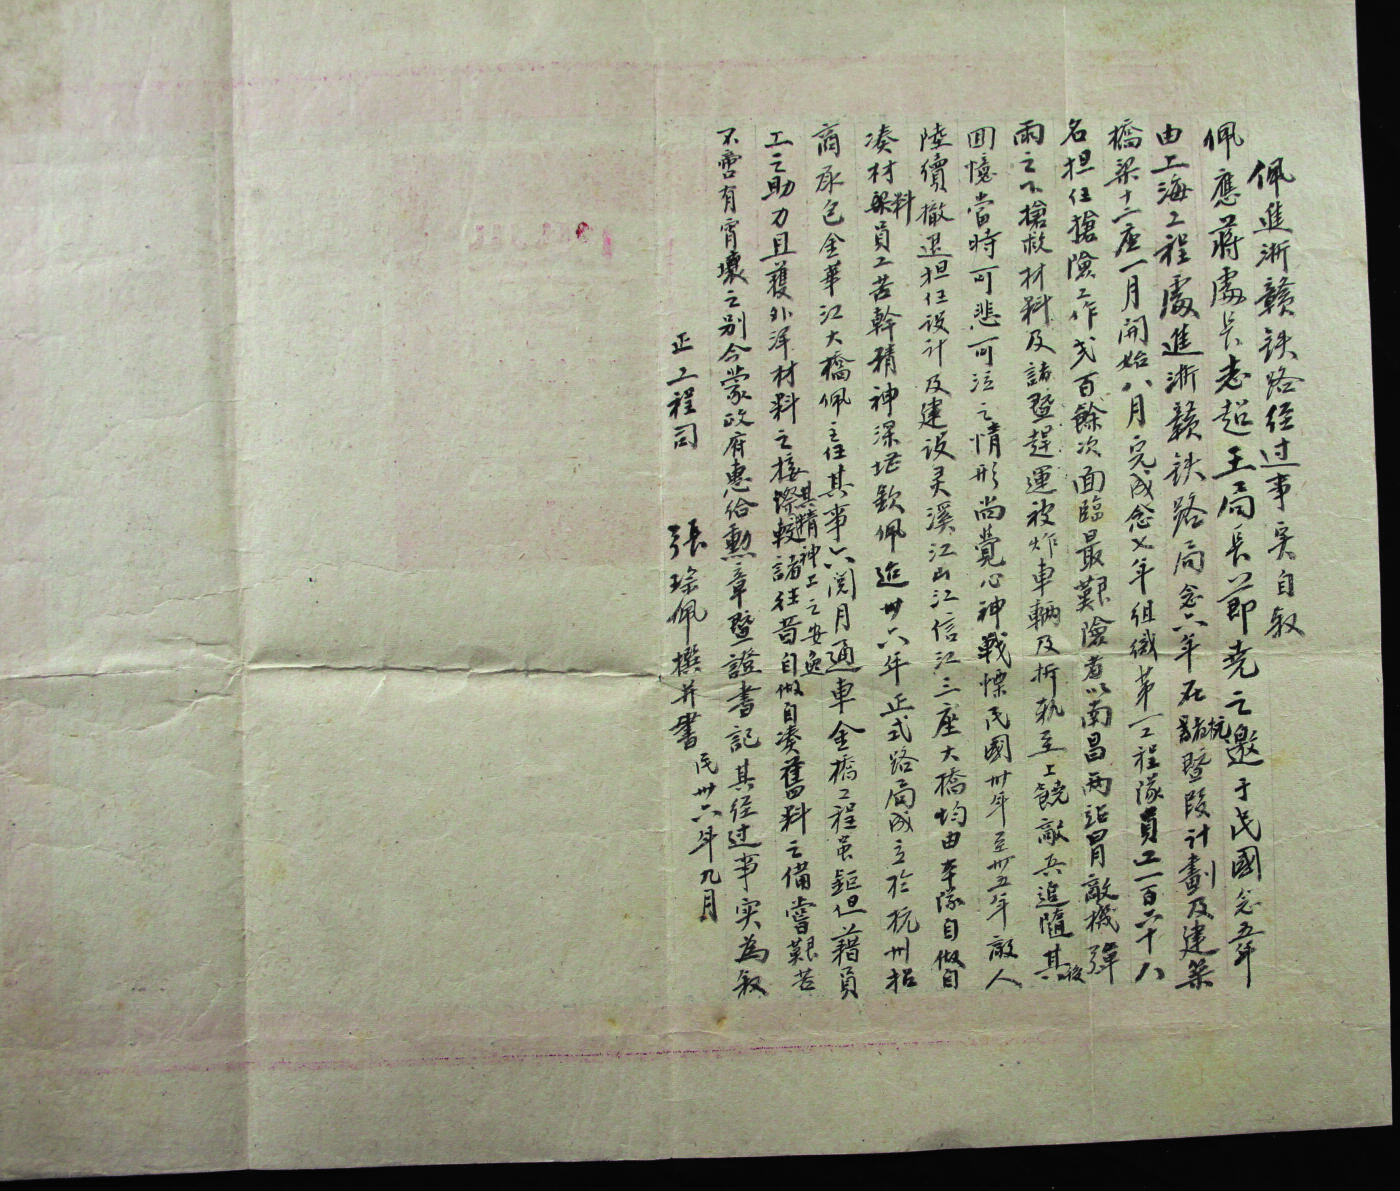 佩進浙贛铁路经过事实自叙
佩應蔣處長志超王局長節堯之邀于民國念五年
由上海工程處進浙贛铁路局念六年在杭諸暨段计劃及建築
橋梁十二座一月開始八月完成念七年组織第一工程隊員工一百六十八
名担任搶險工作弍百餘次面臨最艱險者以南昌两站冒敵機弹
雨之下搶救材料及諸暨趕運被炸車輛及拆軌至上饒敵兵追隨其後
囬憶當時可悲可泣之情形尚覺心神戰慄民國卅年至卅五年敵人
陸續撤退担任设计及建设灵溪江山江信江三座大橋均由本隊自做自
凑材料員工苦幹精神深堪欽佩迨卅六年正式路局成立於杭州招
商承包金華江大橋佩主任其事六閱月通車金橋工程虽鉅但藉員
工之助力且獲外洋材料之接際其精神上之安逸較諸往昔自做自凑舊料之備嘗艱苦
不啻有霄壤之别今蒙政府惠给勳章暨證書記其经过事实為叙
正工程司　張琮佩撰并書　民卅六年九月